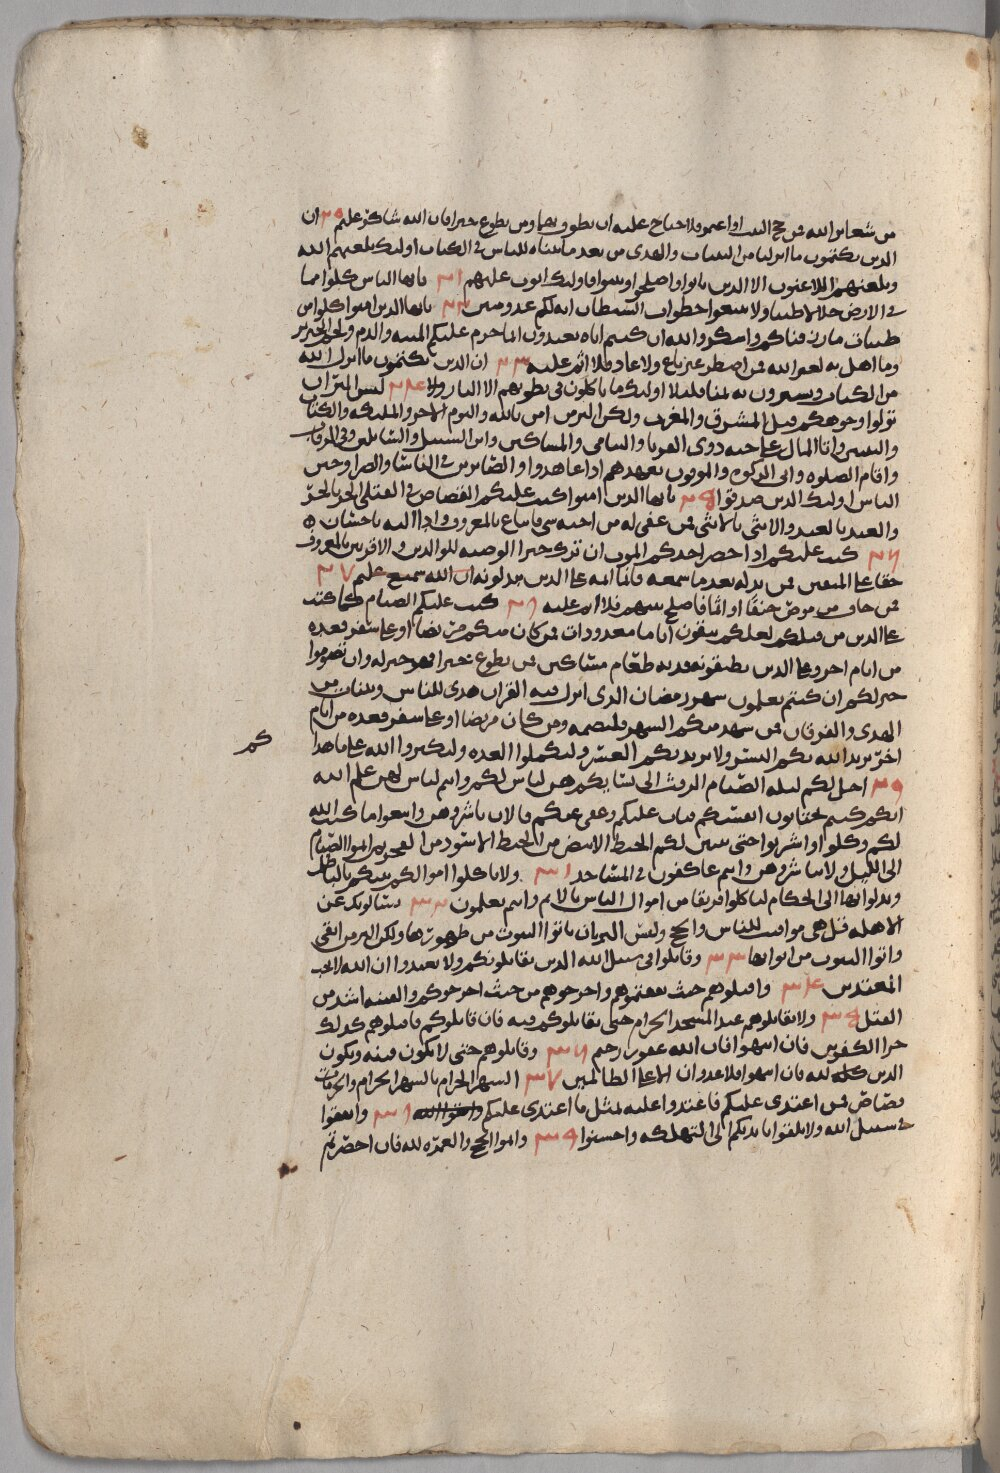 من شعاير الله فمن حج البيت او اعتمر فلا جناح عليه ان يطوف بهما ومن تطوع خيرا فان الله شاكر عليم ٢٩ ان
الدين يكتمون ما انزلنا من البينات والهدى من بعد ما بيناه للناس في الكتاب اوليك يلعنهم الله
ويلعنهم اللاعنون الا الدين تابوا واصلحوا وبينوا فاوليك اتوب عليهم ٢١ يايها الناس كلوا مما
في الارض حلالا طيبا ولا تتبعوا خطوات الشيطان انه لكم عدو مبين ٢٢ يايها الدين امنوا كلوا من
طيبات ما رزقناكم واشكروا الله ان كنتم اياه تعبدون انما حرم عليكم الميته والدم ولحم الخنزير
وما اهل به لغير الله فمن اضطر غير باغ ولا عاد فلا اثم عليه ٢٣ ان الدين يكتمون ما انزل الله
من الكتاب ويشترون به ثمنا قليلا اوليك ما ياكلون في بطونهم الا النار ٢٤ ليس البر ان
تولوا وجوهكم قبل المشرق والمغرب ولكن البر من امن بالله واليوم الاخر والمليكه والكتاب
والنبيين واتا المال على حبه دوى القربا واليتامى والمساكين وابن السبيل والسايلين وفي الرقاب
واقام الصلوه واتى الزكوه والموفون بعهدهم ادا عاهدوا والصابرين في الباسا والضرا وحين
الباس اوليك الدين صدقوا ٢٥ يايها الدين امنوا كتب عليكم القصاص في القتلى الحر بالحر
والعبد بالعبد والانثى بالانثى فمن عفى له من اخيه شي فاتباع بالمعروف واداا اليه باحسان
٢٦ كتب عليكم ادا حضر احدكم الموت ان ترك خيرا الوصيه للوالدين والاقربين بالمعروف
حقا على المتقين فمن بدله بعد ما سمعه فانما اثمه على الدين يبدلونه ان الله سميع عليم ٢٧
فمن خاف من موص جنفا او اثما فاصلح بينهم فلا اثم عليه ٢٨ كتب عليكم الصيام كما كتب
على الدين من قبلكم لعلكم تتقون اياما معدودات فمن كان منكم مريضا او على سفر فعده
من ايام اخر وعلى الدين يطيقونه فديه طعام مساكين فمن تطوع خيرا فهو خير له وان تصوموا
خير لكم ان كنتم تعلمون شهر رمضان الدى انزل فيه القران هدى للناس وبينات من
الهدى والفرقان فمن شهد منكم الشهر فليصمه ومن كان مريضا او على سفر فعده من ايام
اخر يريد الله بكم اليسر ولا يريد بكم العسر ولتكملوا العده ولتكبروا الله على ما هدا
كم
٢٩ احل لكم ليله الصيام الرفث الى نسايكم هن لباس لكم وانتم لباس لهن علم الله
انكم كنتم تختانون انفسكم فتاب عليكم وعفى عنكم فالان باشروهن وابتغوا ما كتب الله
لكم وكلوا واشربوا حتى يتبين لكم الخيط الابيض من الخيط الاسود من الفجر ثم اتموا الصيام
الى الليل ولا تباشروهن وانتم عاكفون في المساجد ٣١ ولا تاكلوا اموالكم بينكم بالباطل
وتدلوا بها الى الحكام لتاكلوا فريقا من اموال الناس بالاثم وانتم تعلمون ٣٢ يسالونك عن
الاهله قل هي مواقيت للناس والحج وليس البر ان تاتوا البيوت من ظهورها ولكن البر من اتقى
واتوا البيوت من ابوابها ٣٣ وقاتلوا في سبيل الله الدين يقاتلونكم ولا تعتدوا ان الله لا يحب
المعتدين ٣٤ واقتلوهم حيث ثقفتموهم واخرجوهم من حيث اخرجوكم والفتنه اشد من
القتل ٣٥ ولا تقاتلوهم عند المسجد الحرام حتى يقاتلوكم فيه فان قاتلوكم فاقتلوهم كدلك
جزا الكفرين فان انتهوا فان الله غفور رحيم ٣٦ وقاتلوهم حتى لا تكون فتنه ويكون
الدين لله فان انتهوا فلا عدوان الا على الظالمين ٣٧ الشهر الحرام بالشهر الحرام والحرمات
قصاص فمن اعتدى عليكم فاعتدوا عليه بمثل ما اعتدى عليكم واتقوا الله ٣٨ وانفقوا
في سبيل الله ولا تلقوا بايديكم الى التهلكه واحسنوا ٣٩ واتموا الحج والعمره لله فان احصرتم